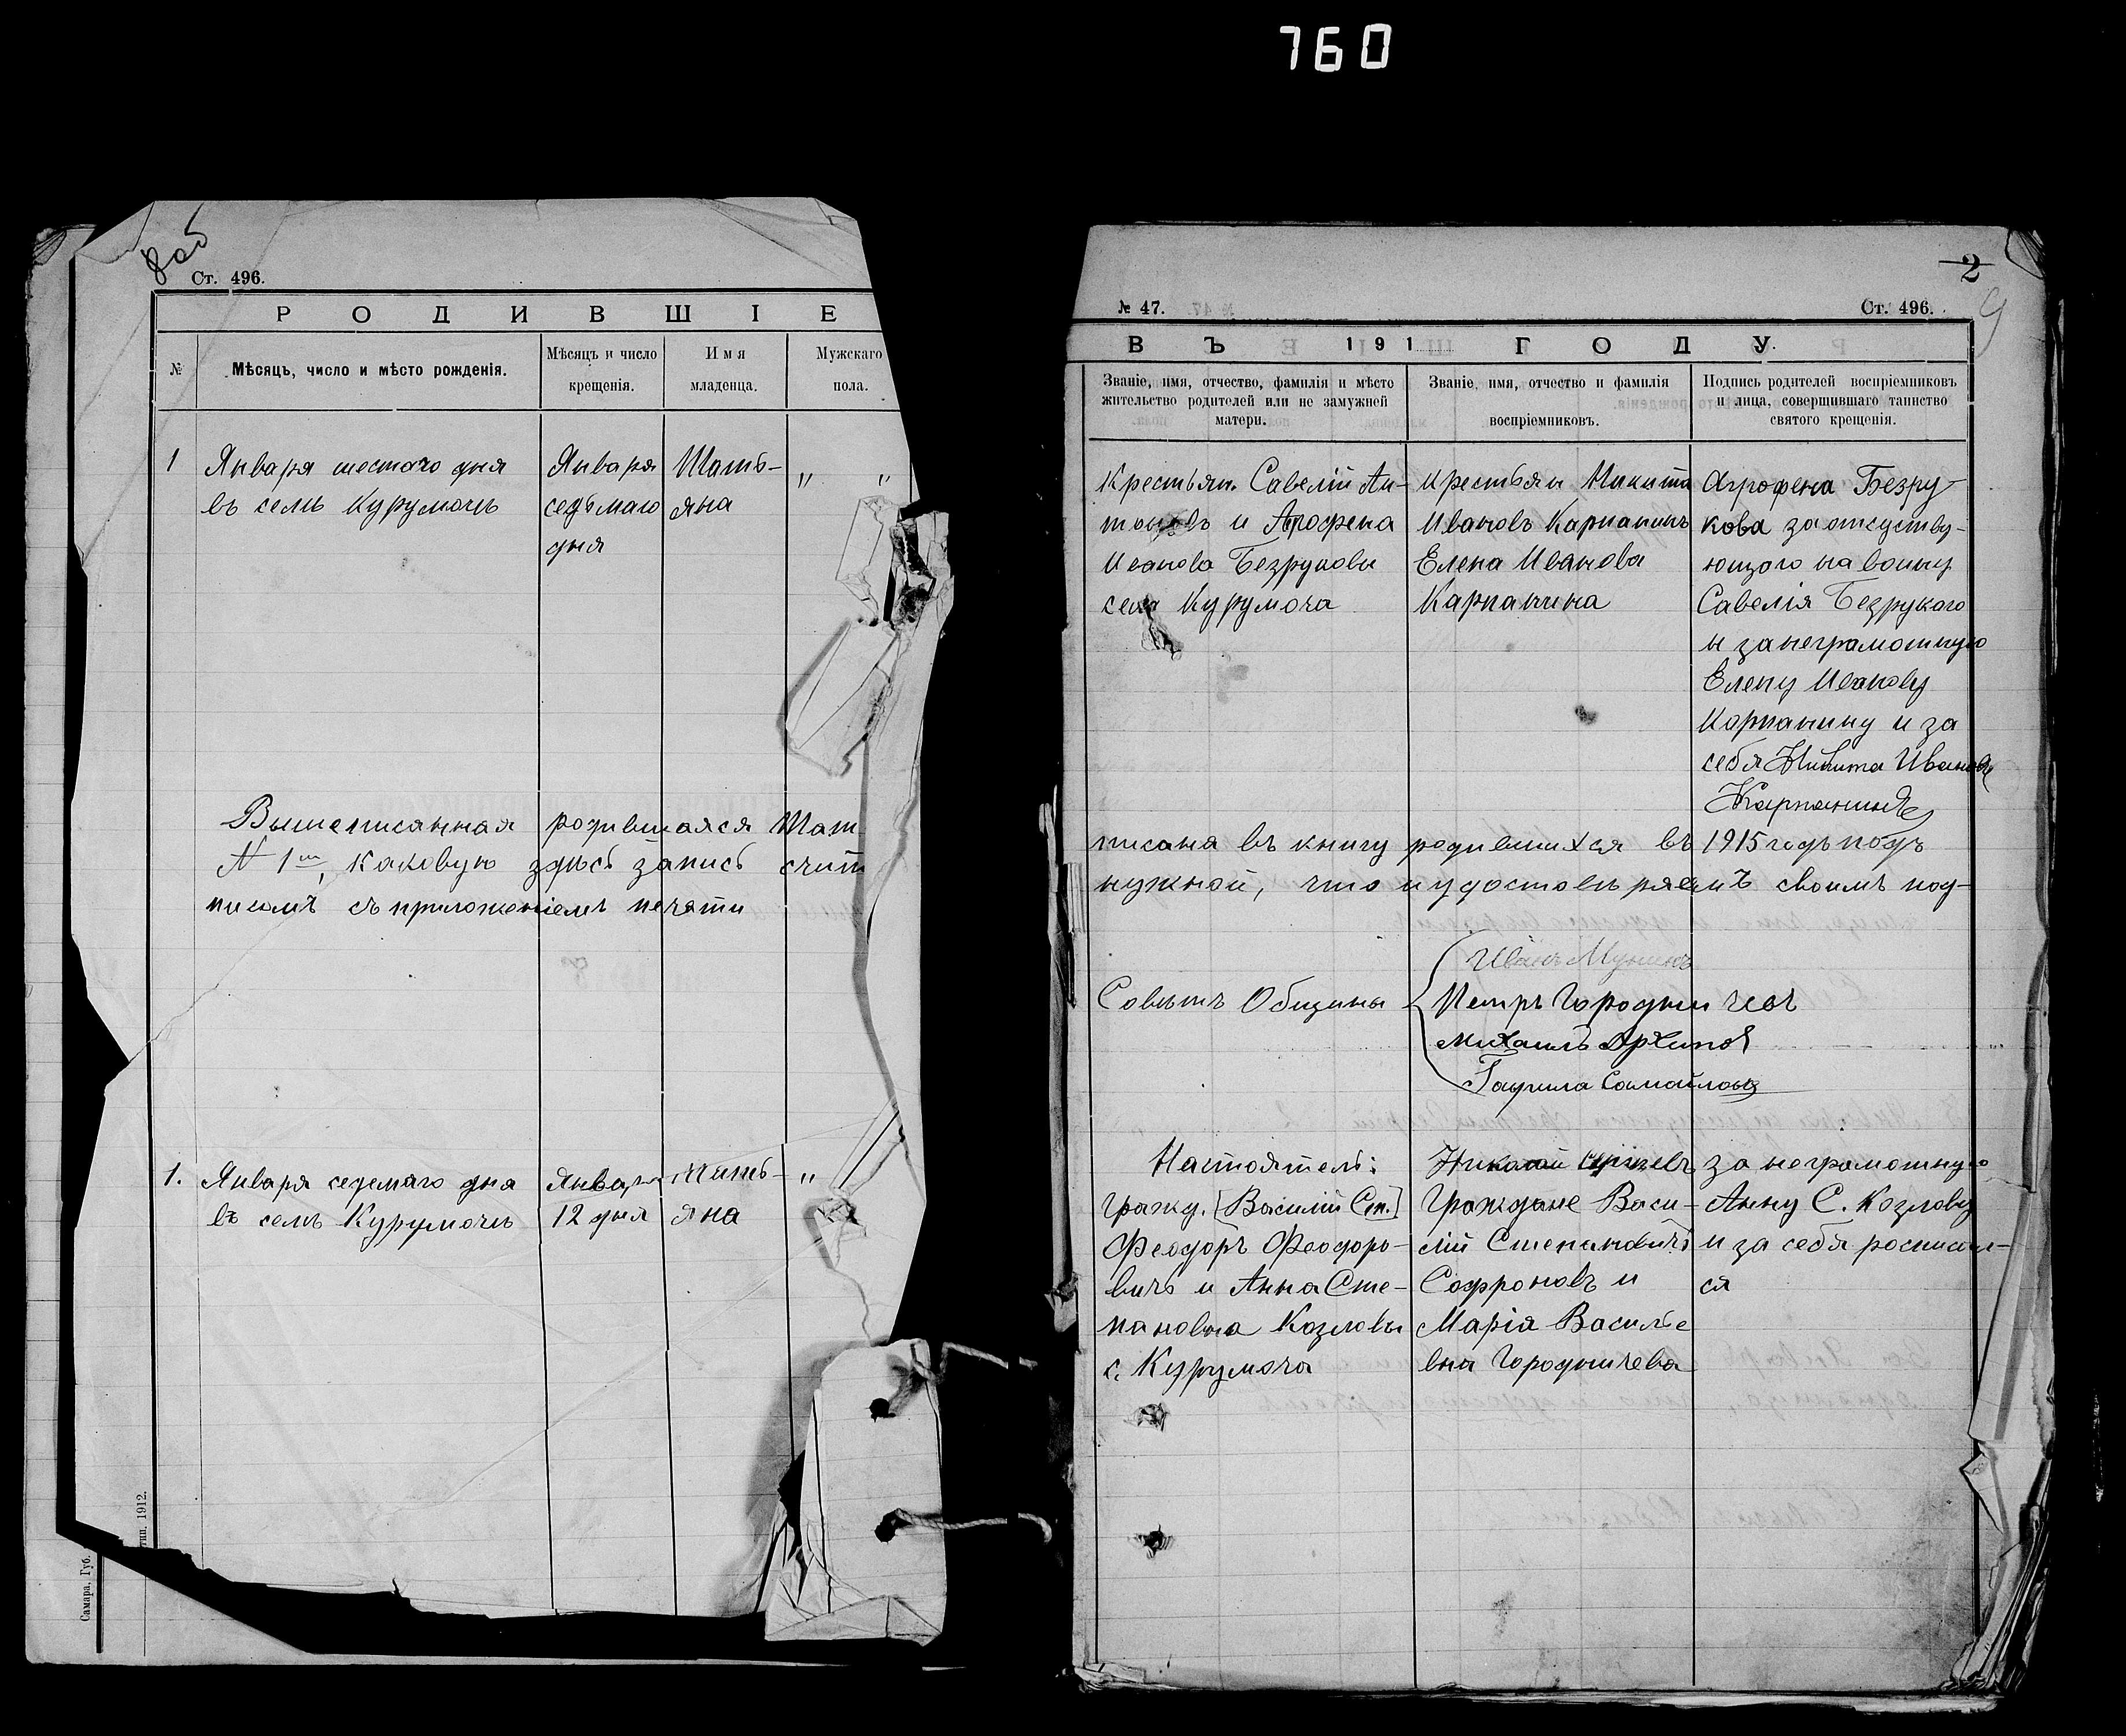 760
Ст. 496.
РОДИВШІЕ
№
Мѣсяцъ, число и мѣсто рожденія.
Мѣсяцъ и число
крещенія.
Имя
младенца.
Мужскаго
пола.
1
Января шестаго дня
въ селѣ Курумочѣ
Января
седьмаго
дня
Татъ-
яна
„ „
Вышеписанная родившаяся Тат
№ 1ый, каковую здѣсь запись счит
писомъ съ приложеніемъ печати
1.
Января седемаго дня
въ селѣ Курумочѣ
Января
12 дня
Тать-
яна
„
Самара, Губ.
тип. 1912.
2
№ 47.
Ст. 496.
ВЪ 191 ГОДУ.
Званіе, имя, отчество, фамилія и мѣсто
жительство родителей или не замужней
матери.
Званіе, имя, отчество и фамилія
воспріемниковъ.
Подпись родителей воспріемниковъ
и лица, совершившаго таинство
святого крещенія.
Крестьян. Савелій Ан-
тоновъ и Агрофена
Иванова Безруковы
села Курумоча
Крестьян Никита
Ивановъ Карпанинъ
Елена Иванова
Карпанина
Агрофена Безру-
кова за отсуству-
ющого на войну
Савелія Безрукого
и за неграмотную
Елену Иванову
Карпанину и за
себя Никита Ивановъ
Карпанинъ
писана въ книгу родившихся въ 1915 годъ подъ
нужной, что и удостовѣряемъ своимъ под-
Совѣтъ Общины
Иванъ
Петръ Городничевъ
Михаилъ Архипов
Гаврила Самойловъ
Настоятель:
Гражд. [Василій Ст.]
Феодоръ Феодоро-
вичъ и Анна Сте-
пановна Козловы
с. Курумоча
Граждане Васи-
лій Степановичъ
Софроновъ и
Марія Василье
вна Городничева
за неграмотную
Анну С. Козлову
и за себя росписал-
ся